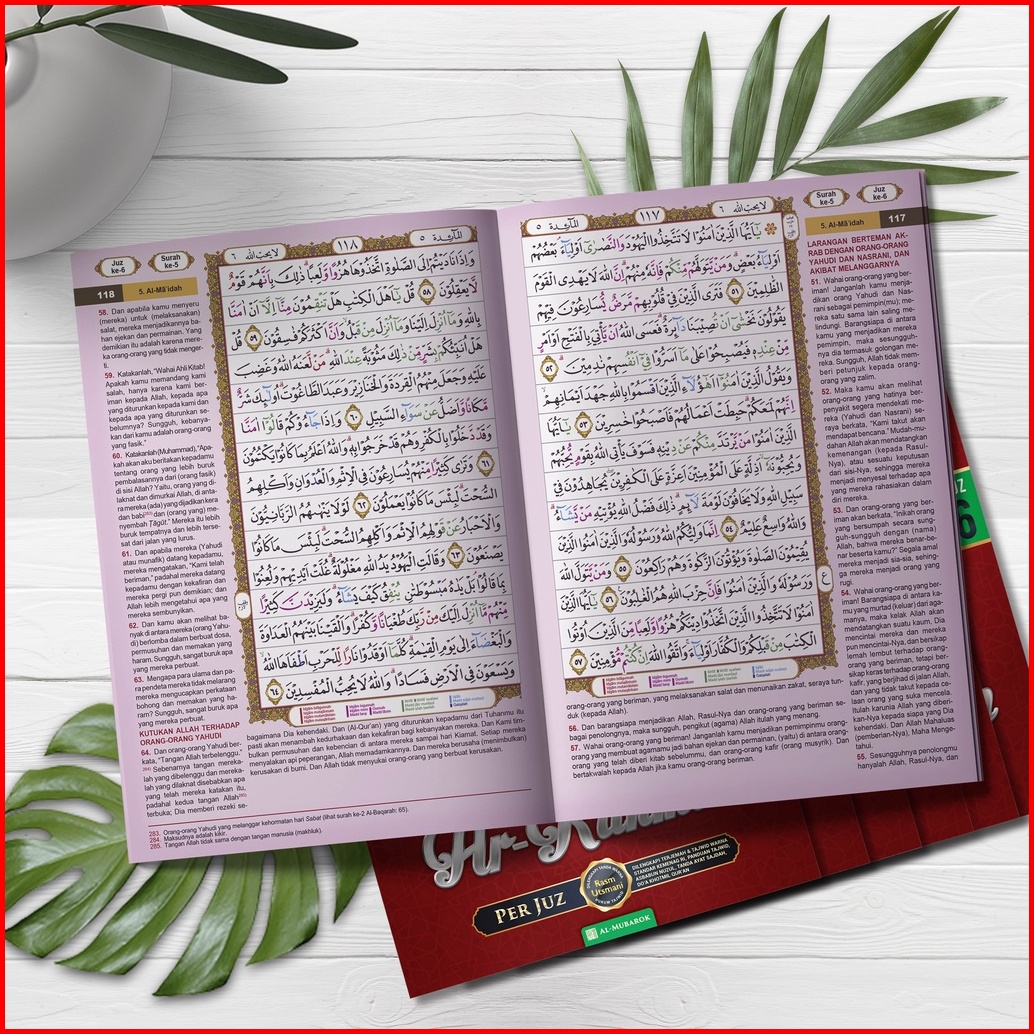 لا يحب الله ٦
١١٧
المآئدة ٥
يٰٓاَيُّهَا الَّذِيْنَ اٰمَنُوْا لَا تَتَّخِذُوا الْيَهُوْدَ وَالنَّصٰرٰٓى اَوْلِيَاۤءَ ۘ بَعْضُهُمْ
اَوْلِيَاۤءُ بَعْضٍۗ وَمَنْ يَّتَوَلَّهُمْ مِّنْكُمْ فَاِنَّهٗ مِنْهُمْ ۗ اِنَّ اللّٰهَ لَا يَهْدِى الْقَوْمَ
الظّٰلِمِيْنَ ٥١ فَتَرَى الَّذِيْنَ فِيْ قُلُوْبِهِمْ مَّرَضٌ يُّسَارِعُوْنَ فِيْهِمْ
يَقُوْلُوْنَ نَخْشٰٓى اَنْ تُصِيْبَنَا دَاۤىِٕرَةٌ ۗ فَعَسَى اللّٰهُ اَنْ يَّأْتِيَ بِالْفَتْحِ اَوْ اَمْرٍ
مِّنْ عِنْدِهٖ فَيُصْبِحُوْا عَلٰى مَآ اَسَرُّوْا فِيْٓ اَنْفُسِهِمْ نٰدِمِيْنَ ٥٢
وَيَقُوْلُ الَّذِيْنَ اٰمَنُوْٓا اَهٰٓؤُلَاۤءِ الَّذِيْنَ اَقْسَمُوْا بِاللّٰهِ جَهْدَ اَيْمَانِهِمْ
اِنَّهُمْ لَمَعَكُمْ ۗ حَبِطَتْ اَعْمَالُهُمْ فَاَصْبَحُوْا خٰسِرِيْنَ ٥٣ يٰٓاَيُّهَا
الَّذِيْنَ اٰمَنُوْا مَنْ يَّرْتَدَّ مِنْكُمْ عَنْ دِيْنِهٖ فَسَوْفَ يَأْتِى اللّٰهُ بِقَوْمٍ يُّحِبُّهُمْ
وَيُحِبُّوْنَهٗٓ ۙ اَذِلَّةٍ عَلَى الْمُؤْمِنِيْنَ اَعِزَّةٍ عَلَى الْكٰفِرِيْنَ ۖ يُجَاهِدُوْنَ فِيْ
سَبِيْلِ اللّٰهِ وَلَا يَخَافُوْنَ لَوْمَةَ لَاۤىِٕمٍ ۗ ذٰلِكَ فَضْلُ اللّٰهِ يُؤْتِيْهِ مَنْ يَّشَاۤءُ ۗ
وَاللّٰهُ وَاسِعٌ عَلِيْمٌ ٥٤ اِنَّمَا وَلِيُّكُمُ اللّٰهُ وَرَسُوْلُهٗ وَالَّذِيْنَ اٰمَنُوا الَّذِيْنَ
يُقِيْمُوْنَ الصَّلٰوةَ وَيُؤْتُوْنَ الزَّكٰوةَ وَهُمْ رٰكِعُوْنَ ٥٥ وَمَنْ يَّتَوَلَّ اللّٰهَ
وَرَسُوْلَهٗ وَالَّذِيْنَ اٰمَنُوْا فَاِنَّ حِزْبَ اللّٰهِ هُمُ الْغٰلِبُوْنَ ٥٦ يٰٓاَيُّهَا الَّذِيْنَ
اٰمَنُوْا لَا تَتَّخِذُوا الَّذِيْنَ اتَّخَذُوْا دِيْنَكُمْ هُزُوًا وَّلَعِبًا مِّنَ الَّذِيْنَ اُوْتُوا
الْكِتٰبَ مِنْ قَبْلِكُمْ وَالْكُفَّارَ اَوْلِيَاۤءَۚ وَاتَّقُوا اللّٰهَ اِنْ كُنْتُمْ مُّؤْمِنِيْنَ ٥٧
Surah ke-5
Juz ke-6
5. Al-Mā'idah 117
LARANGAN BERTEMAN AK-
RAB DENGAN ORANG-ORANG
YAHUDI DAN NASRANI, DAN
AKIBAT MELANGGARNYA
51. Wahai orang-orang yang ber-
iman! Janganlah kamu menja-
dikan orang Yahudi dan Nas-
rani sebagai pemimpin(mu); me-
reka satu sama lain saling me-
lindungi. Barangsiapa di antara
kamu yang menjadikan mereka
pemimpin, maka sesungguh-
nya dia termasuk golongan me-
reka. Sungguh, Allah tidak mem-
beri petunjuk kepada orang-
orang yang zalim.
52. Maka kamu akan melihat
orang-orang yang hatinya ber-
penyakit segera mendekati me-
reka (Yahudi dan Nasrani) se-
raya berkata, "Kami takut akan
mendapat bencana." Mudah-mu-
dahan Allah akan mendatangkan
kemenangan (kepada Rasul-
Nya), atau sesuatu keputusan
dari sisi-Nya, sehingga mereka
menjadi menyesal terhadap apa
yang mereka rahasiakan dalam
diri mereka.
53. Dan orang-orang yang ber-
iman akan berkata, "Inikah orang
yang bersumpah secara sung-
guh-sungguh dengan (nama)
Allah, bahwa mereka benar-be-
nar beserta kamu?" Segala amal
mereka menjadi sia-sia, sehing-
ga mereka menjadi orang yang
rugi.
54. Wahai orang-orang yang ber-
iman! Barangsiapa di antara ka-
mu yang murtad (keluar) dari aga-
manya, maka kelak Allah akan
mendatangkan suatu kaum, Dia
mencintai mereka dan mereka
pun mencintai-Nya, dan bersikap
lemah lembut terhadap orang-
orang yang beriman, tetapi ber-
sikap keras terhadap orang-orang
kafir, yang berjihad di jalan Allah,
dan yang tidak takut kepada ce-
laan orang yang suka mencela.
Itulah karunia Allah yang diberi-
kan-Nya kepada siapa yang Dia
kehendaki. Dan Allah Mahaluas
(pemberian-Nya), Maha Menge-
tahui.
55. Sesungguhnya penolongmu
hanyalah Allah, Rasul-Nya, dan
orang-orang yang beriman, yang melaksanakan salat dan menunaikan zakat, seraya tun-
duk (kepada Allah).
56. Dan barangsiapa menjadikan Allah, Rasul-Nya dan orang-orang yang beriman se-
bagai penolongnya, maka sungguh, pengikut (agama) Allah itulah yang menang.
57. Wahai orang-orang yang beriman! Janganlah kamu menjadikan pemimpinmu orang-
orang yang membuat agamamu jadi bahan ejekan dan permainan, (yaitu) di antara orang-
orang yang telah diberi kitab sebelummu, dan orang-orang kafir (orang musyrik). Dan
bertakwalah kepada Allah jika kamu orang-orang beriman.
لا يحب الله ٦
١١٨
المآئدة ٥
وَاِذَا نَادَيْتُمْ اِلَى الصَّلٰوةِ اتَّخَذُوْهَا هُزُوًا وَّلَعِبًا ۗ ذٰلِكَ بِاَنَّهُمْ قَوْمٌ
لَّا يَعْقِلُوْنَ ٥٨ قُلْ يٰٓاَهْلَ الْكِتٰبِ هَلْ تَنْقِمُوْنَ مِنَّآ اِلَّآ اَنْ اٰمَنَّا
بِاللّٰهِ وَمَآ اُنْزِلَ اِلَيْنَا وَمَآ اُنْزِلَ مِنْ قَبْلُ ۙ وَاَنَّ اَكْثَرَكُمْ فٰسِقُوْنَ ٥٩ قُلْ
هَلْ اُنَبِّئُكُمْ بِشَرٍّ مِّنْ ذٰلِكَ مَثُوْبَةً عِنْدَ اللّٰهِ ۗ مَنْ لَّعَنَهُ اللّٰهُ وَغَضِبَ
عَلَيْهِ وَجَعَلَ مِنْهُمُ الْقِرَدَةَ وَالْخَنَازِيْرَ وَعَبَدَ الطَّاغُوْتَۗ اُولٰۤىِٕكَ شَرٌّ
مَّكَانًا وَّاَضَلُّ عَنْ سَوَاۤءِ السَّبِيْلِ ٦٠ وَاِذَا جَاۤءُوْكُمْ قَالُوْٓا اٰمَنَّا
وَقَدْ دَّخَلُوْا بِالْكُفْرِ وَهُمْ قَدْ خَرَجُوْا بِهٖ ۗ وَاللّٰهُ اَعْلَمُ بِمَا كَانُوْا يَكْتُمُوْنَ
٦١ وَتَرٰى كَثِيْرًا مِّنْهُمْ يُسَارِعُوْنَ فِى الْاِثْمِ وَالْعُدْوَانِ وَاَكْلِهِمُ
السُّحْتَۗ لَبِئْسَ مَا كَانُوْا يَعْمَلُوْنَ ٦٢ لَوْلَا يَنْهٰىهُمُ الرَّبَّانِيُّوْنَ
وَالْاَحْبَارُ عَنْ قَوْلِهِمُ الْاِثْمَ وَاَكْلِهِمُ السُّحْتَۗ لَبِئْسَ مَا كَانُوْا
يَصْنَعُوْنَ ٦٣ وَقَالَتِ الْيَهُوْدُ يَدُ اللّٰهِ مَغْلُوْلَةٌ ۗ غُلَّتْ اَيْدِيْهِمْ وَلُعِنُوْا
بِمَا قَالُوْا ۘ بَلْ يَدٰهُ مَبْسُوْطَتٰنِۙ يُنْفِقُ كَيْفَ يَشَاۤءُ ۗ وَلَيَزِيْدَنَّ كَثِيْرًا
مِّنْهُمْ مَّآ اُنْزِلَ اِلَيْكَ مِنْ رَّبِّكَ طُغْيَانًا وَّكُفْرًا ۗ وَاَلْقَيْنَا بَيْنَهُمُ الْعَدَاوَةَ
وَالْبَغْضَاۤءَ اِلٰى يَوْمِ الْقِيٰمَةِ ۗ كُلَّمَآ اَوْقَدُوْا نَارًا لِّلْحَرْبِ اَطْفَاَهَا اللّٰهُ ۙ
وَيَسْعَوْنَ فِى الْاَرْضِ فَسَادًا ۗ وَاللّٰهُ لَا يُحِبُّ الْمُفْسِدِيْنَ ٦٤
Juz ke-6
Surah ke-5
118 5. Al-Mā'idah
58. Dan apabila kamu menyeru
(mereka) untuk (melaksanakan)
salat, mereka menjadikannya ba-
han ejekan dan permainan. Yang
demikian itu adalah karena mere-
ka orang-orang yang tidak menger-
ti.
59. Katakanlah, "Wahai Ahli Kitab!
Apakah kamu memandang kami
salah, hanya karena kami ber-
iman kepada Allah, kepada apa
yang diturunkan kepada kami dan
kepada apa yang diturunkan se-
belumnya? Sungguh, kebanya-
kan dari kamu adalah orang-orang
yang fasik."
60. Katakanlah (Muhammad), "Apa-
kah akan aku beritakan kepadamu
tentang orang yang lebih buruk
pembalasannya dari (orang fasik)
di sisi Allah? Yaitu, orang yang di-
laknat dan dimurkai Allah, di anta-
ra mereka (ada) yang dijadikan kera
dan babi²⁸³ dan (orang yang) me-
nyembah Ṭāgūt." Mereka itu lebih
buruk tempatnya dan lebih terse-
sat dari jalan yang lurus.
61. Dan apabila mereka (Yahudi
atau munafik) datang kepadamu,
mereka mengatakan, "Kami telah
beriman," padahal mereka datang
kepadamu dengan kekafiran dan
mereka pergi pun demikian; dan
Allah lebih mengetahui apa yang
mereka sembunyikan.
62. Dan kamu akan melihat ba-
nyak di antara mereka (orang Yahu-
di) berlomba dalam berbuat dosa,
permusuhan dan memakan yang
haram. Sungguh, sangat buruk apa
yang mereka perbuat.
63. Mengapa para ulama dan pa-
ra pendeta mereka tidak melarang
mereka mengucapkan perkataan
bohong dan memakan yang ha-
ram? Sungguh, sangat buruk apa
yang mereka perbuat.
KUTUKAN ALLAH TERHADAP
ORANG-ORANG YAHUDI
64. Dan orang-orang Yahudi ber-
kata, "Tangan Allah terbelenggu."
²⁸⁴ Sebenarnya tangan mereka-
lah yang dibelenggu dan mereka-
lah yang dilaknat disebabkan apa
yang telah mereka katakan itu,
padahal kedua tangan Allah²⁸⁵
terbuka; Dia memberi rezeki se-
bagaimana Dia kehendaki. Dan (Al-Qur'an) yang diturunkan kepadamu dari Tuhanmu itu
pasti akan menambah kedurhakaan dan kekafiran bagi kebanyakan mereka. Dan Kami tim-
bulkan permusuhan dan kebencian di antara mereka sampai hari Kiamat. Setiap mereka
menyalakan api peperangan, Allah memadamkannya. Dan mereka berusaha (menimbulkan)
kerusakan di bumi. Dan Allah tidak menyukai orang-orang yang berbuat kerusakan.
283. Orang-orang Yahudi yang melanggar kehormatan hari Sabat (lihat surah ke-2 Al-Baqarah: 65).
284. Maksudnya adalah kikir.
285. Tangan Allah tidak sama dengan tangan manusia (makhluk).
PER JUZ
Rasm
Utsmani
DILENGKAPI TERJEMAH & TAJWID WARNA
STANDAR KEMENAG RI, PANDUAN TAJWID,
ASBABUN NUZUL, TANDA AYAT SAJDAH,
DO'A KHOTMIL QUR'AN
AL-MUBAROK